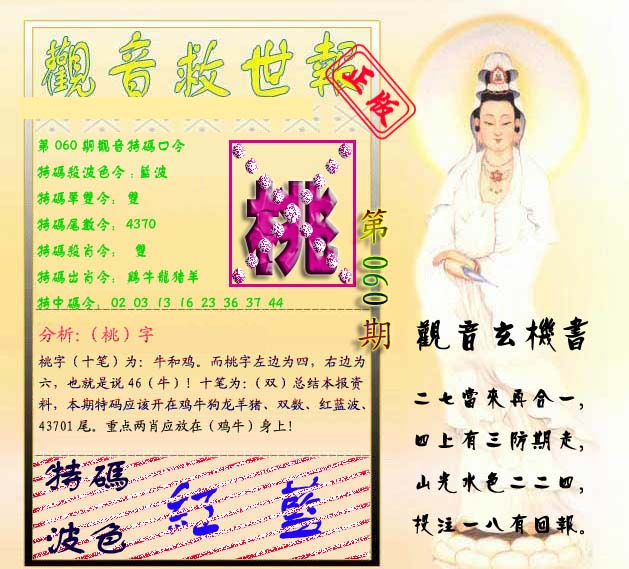 觀音救世報
正版
第060期觀音特碼口令
特碼殺波色令:藍波
特碼單雙令: 雙
特碼尾數令: 4370
特碼殺肖令: 雙
特碼出肖令: 鷄牛龍猪羊
特中碼令: 02 03 13 16 23 36 37 44
桃
第060期
分析:（桃）字
桃字（十笔）为：牛和鸡。而桃字左边为四，右边为
六，也就是说46（牛）！十笔为：（双）总结本报资
料，本期特码应该开在鸡牛狗龙羊猪、双数、红蓝波、
43701尾。重点两肖应放在（鸡牛）身上！
特碼
波色
紅 藍
觀音玄機書
二七當來再合一，
四上有三防期走，
山光水色二二四，
投注一八有回報。